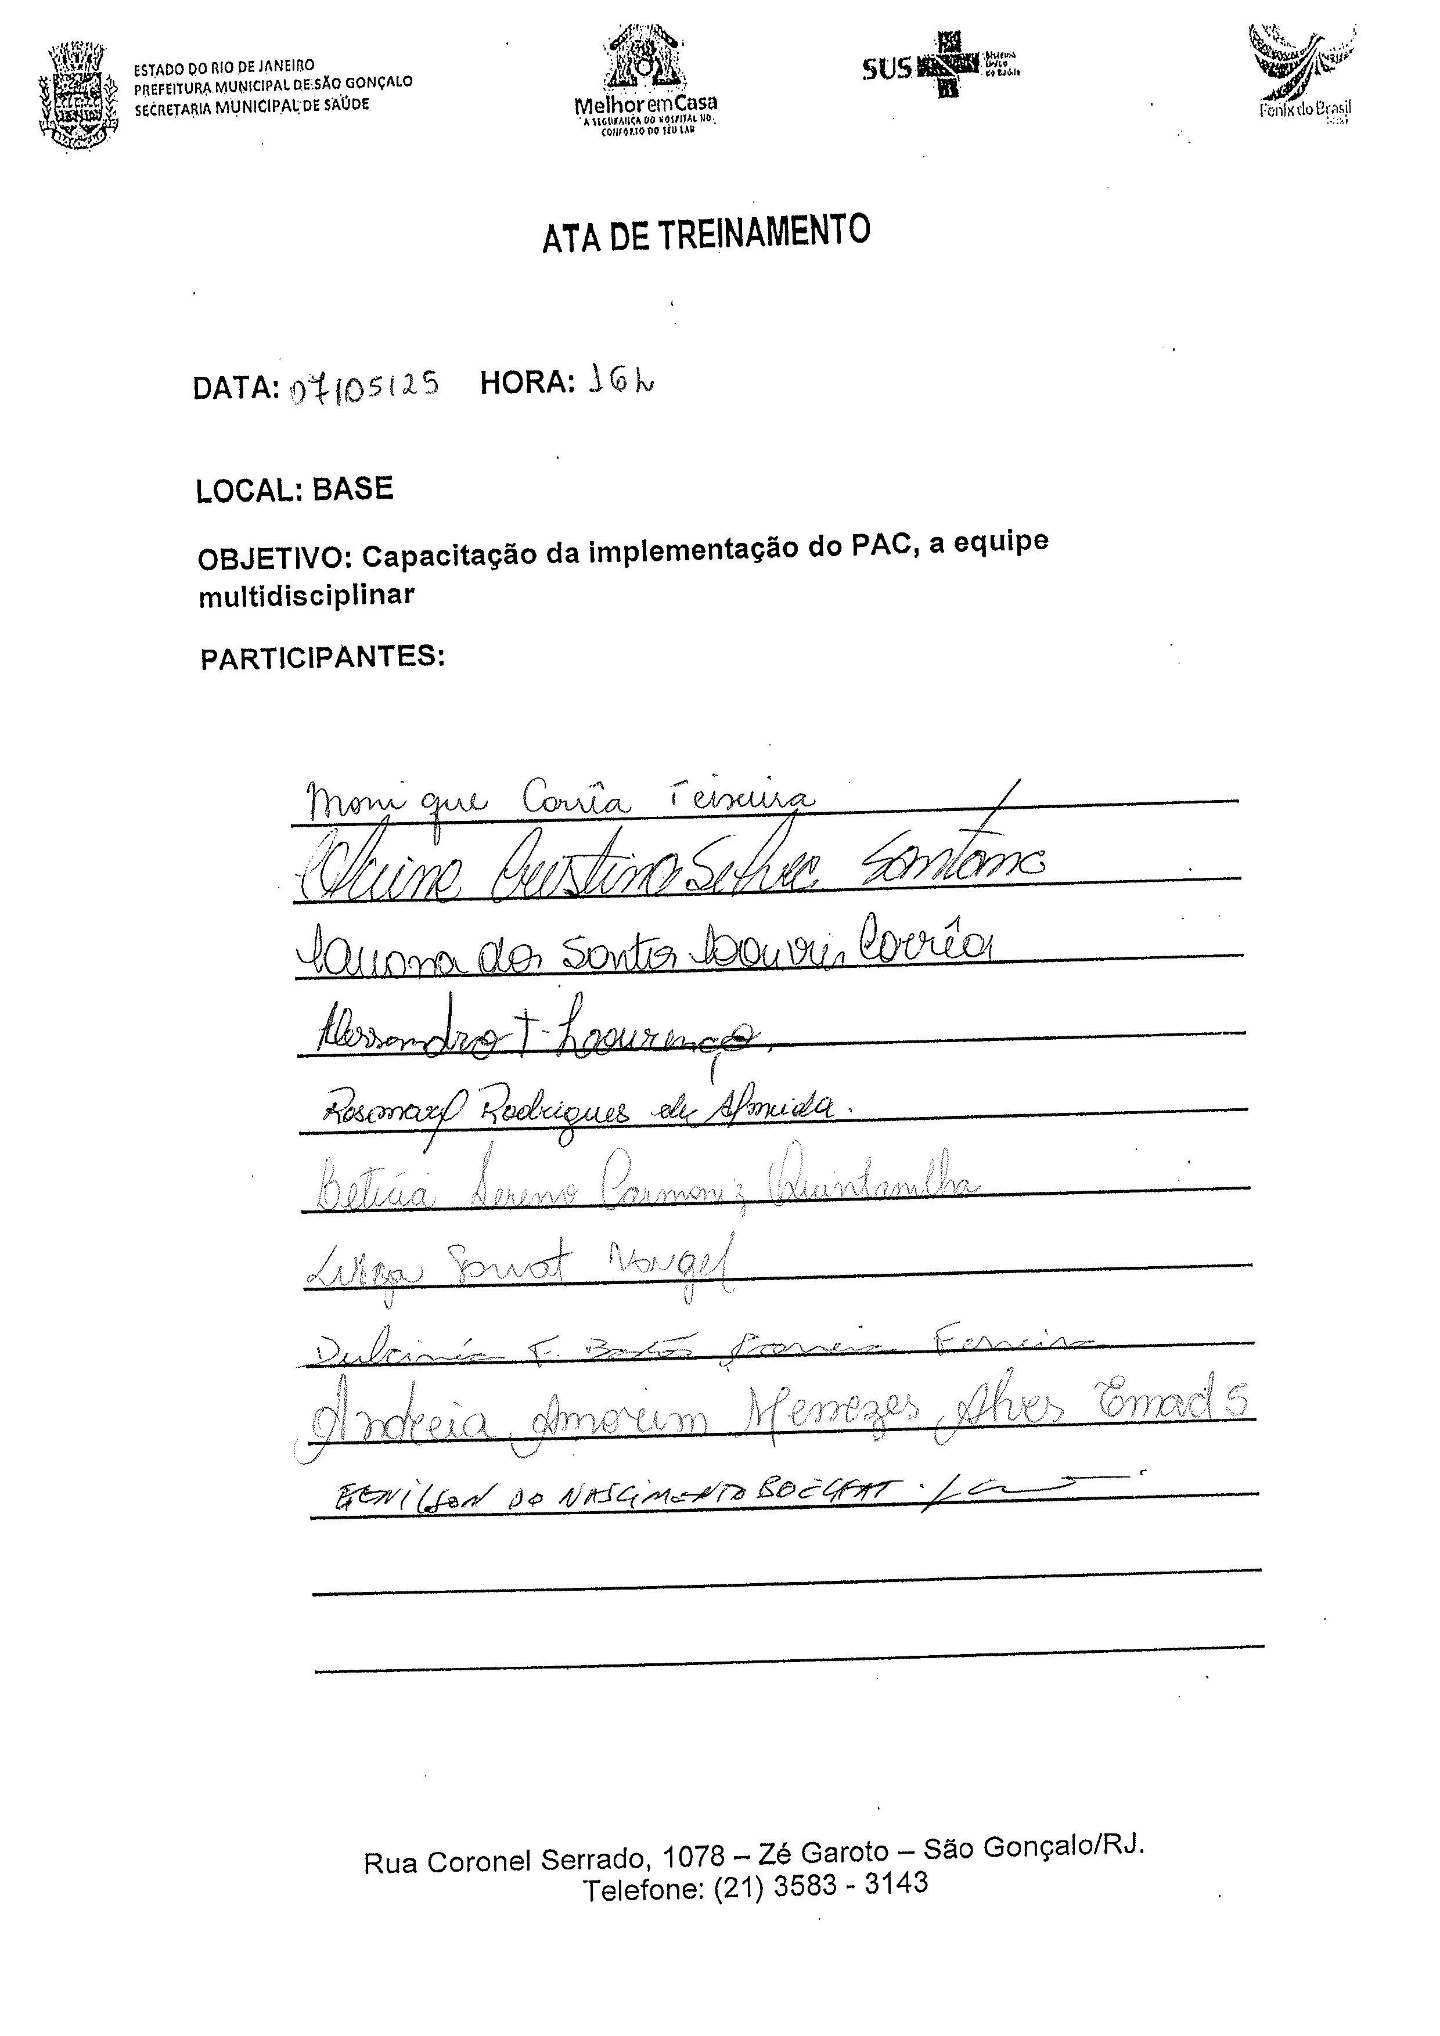 ESTADO DO RIO DE JANEIRO
PREFEITURA MUNICIPAL DE SÃO GONÇALO
SECRETARIA MUNICIPAL DE SAÚDE
Melhor em Casa
A SEGURANÇA DO HOSPITAL NO
CONFORTO DO SEU LAR
SUS
Fenix do Brasil
ATA DE TREINAMENTO
DATA: 07/05/25 HORA: 16h
LOCAL: BASE
OBJETIVO: Capacitação da implementação do PAC, a equipe
multidisciplinar
PARTICIPANTES:
Monique Corrêa Teixeira
Cristina Silva Santana
dos Santos Corrêa
Alessandro T. Lourenço
Rosemary Rodrigues de Almeida.
Letícia Sereno Carmoniz Quintanilha
Luiza
Dulcinéa F. Ferreira
Andreia Amorim Menezes Alves Emad 5
DO NASCIMENTO BOECHAT
Rua Coronel Serrado, 1078 – Zé Garoto – São Gonçalo/RJ.
Telefone: (21) 3583 - 3143